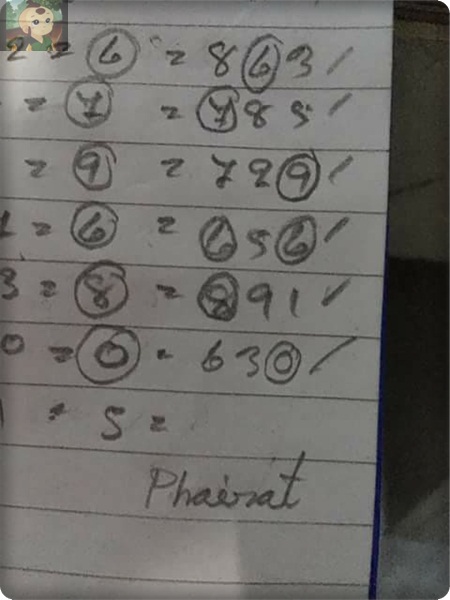 2 = 6 = 863 /
= 7 = 785 /
= 9 = 729 /
1 = 6 = 656 /
3 = 8 = 891 /
0 = 0 - 630 /
1 = 5 =
Phairat